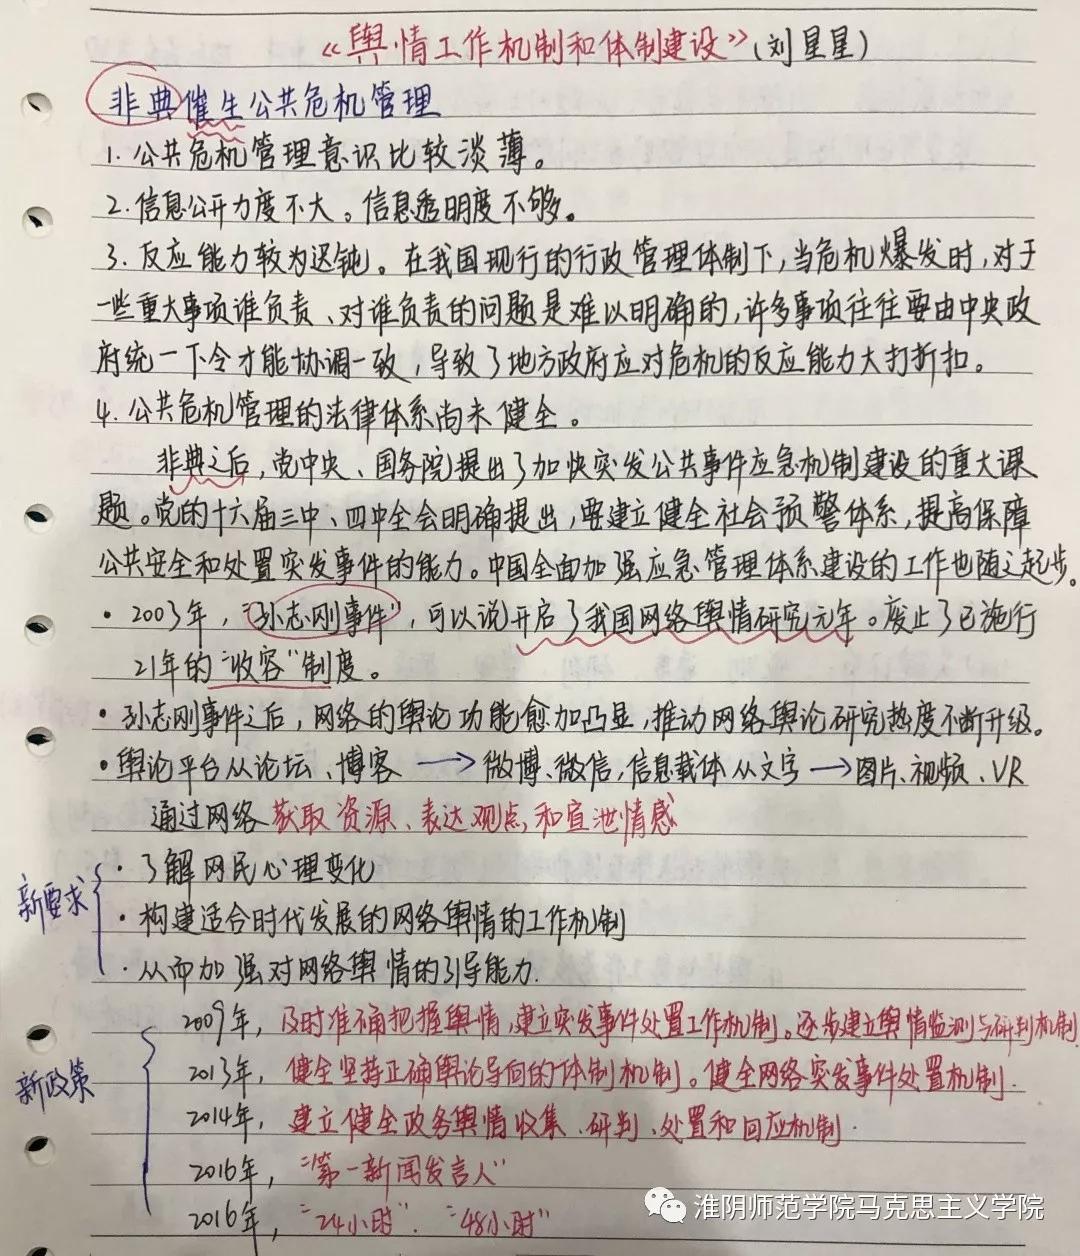 《舆情工作机制和体制建设》(刘星星)
非典催生公共危机管理
1. 公共危机管理意识比较淡薄。
2. 信息公开力度不大。信息透明度不够。
3. 反应能力较为迟钝。在我国现行的行政管理体制下,当危机爆发时,对于
一些重大事项谁负责、对谁负责的问题是难以明确的,许多事项往往要由中央政
府统一下令才能协调一致,导致了地方政府应对危机的反应能力大打折扣。
4. 公共危机管理的法律体系尚未健全。
非典之后,党中央、国务院提出了加快突发公共事件应急机制建设的重大课
题。党的十六届三中、四中全会明确提出,要建立健全社会预警体系,提高保障
公共安全和处置突发事件的能力。中国全面加强应急管理体系建设的工作也随之起步。
· 2003年,"孙志刚事件",可以说开启了我国网络舆情研究元年。废止了已施行
21年的"收容"制度。
· 孙志刚事件之后,网络的舆论功能愈加凸显,推动网络舆论研究热度不断升级。
· 舆论平台从论坛、博客 → 微博、微信,信息载体从文字 → 图片、视频、VR
通过网络获取资源、表达观点和宣泄情感
新要求
· 了解网民心理变化
· 构建适合时代发展的网络舆情的工作机制
· 从而加强对网络舆情的引导能力.
新政策
2009年,及时准确把握舆情,建立突发事件处置工作机制。逐步建立舆情监测与研判机制
2013年,健全坚持正确舆论导向的体制机制。健全网络突发事件处置机制.
2014年,建立健全政务舆情收集、研判、处置和回应机制.
2016年,"第一新闻发言人"
2016年,"24小时". "48小时"
淮阴师范学院马克思主义学院